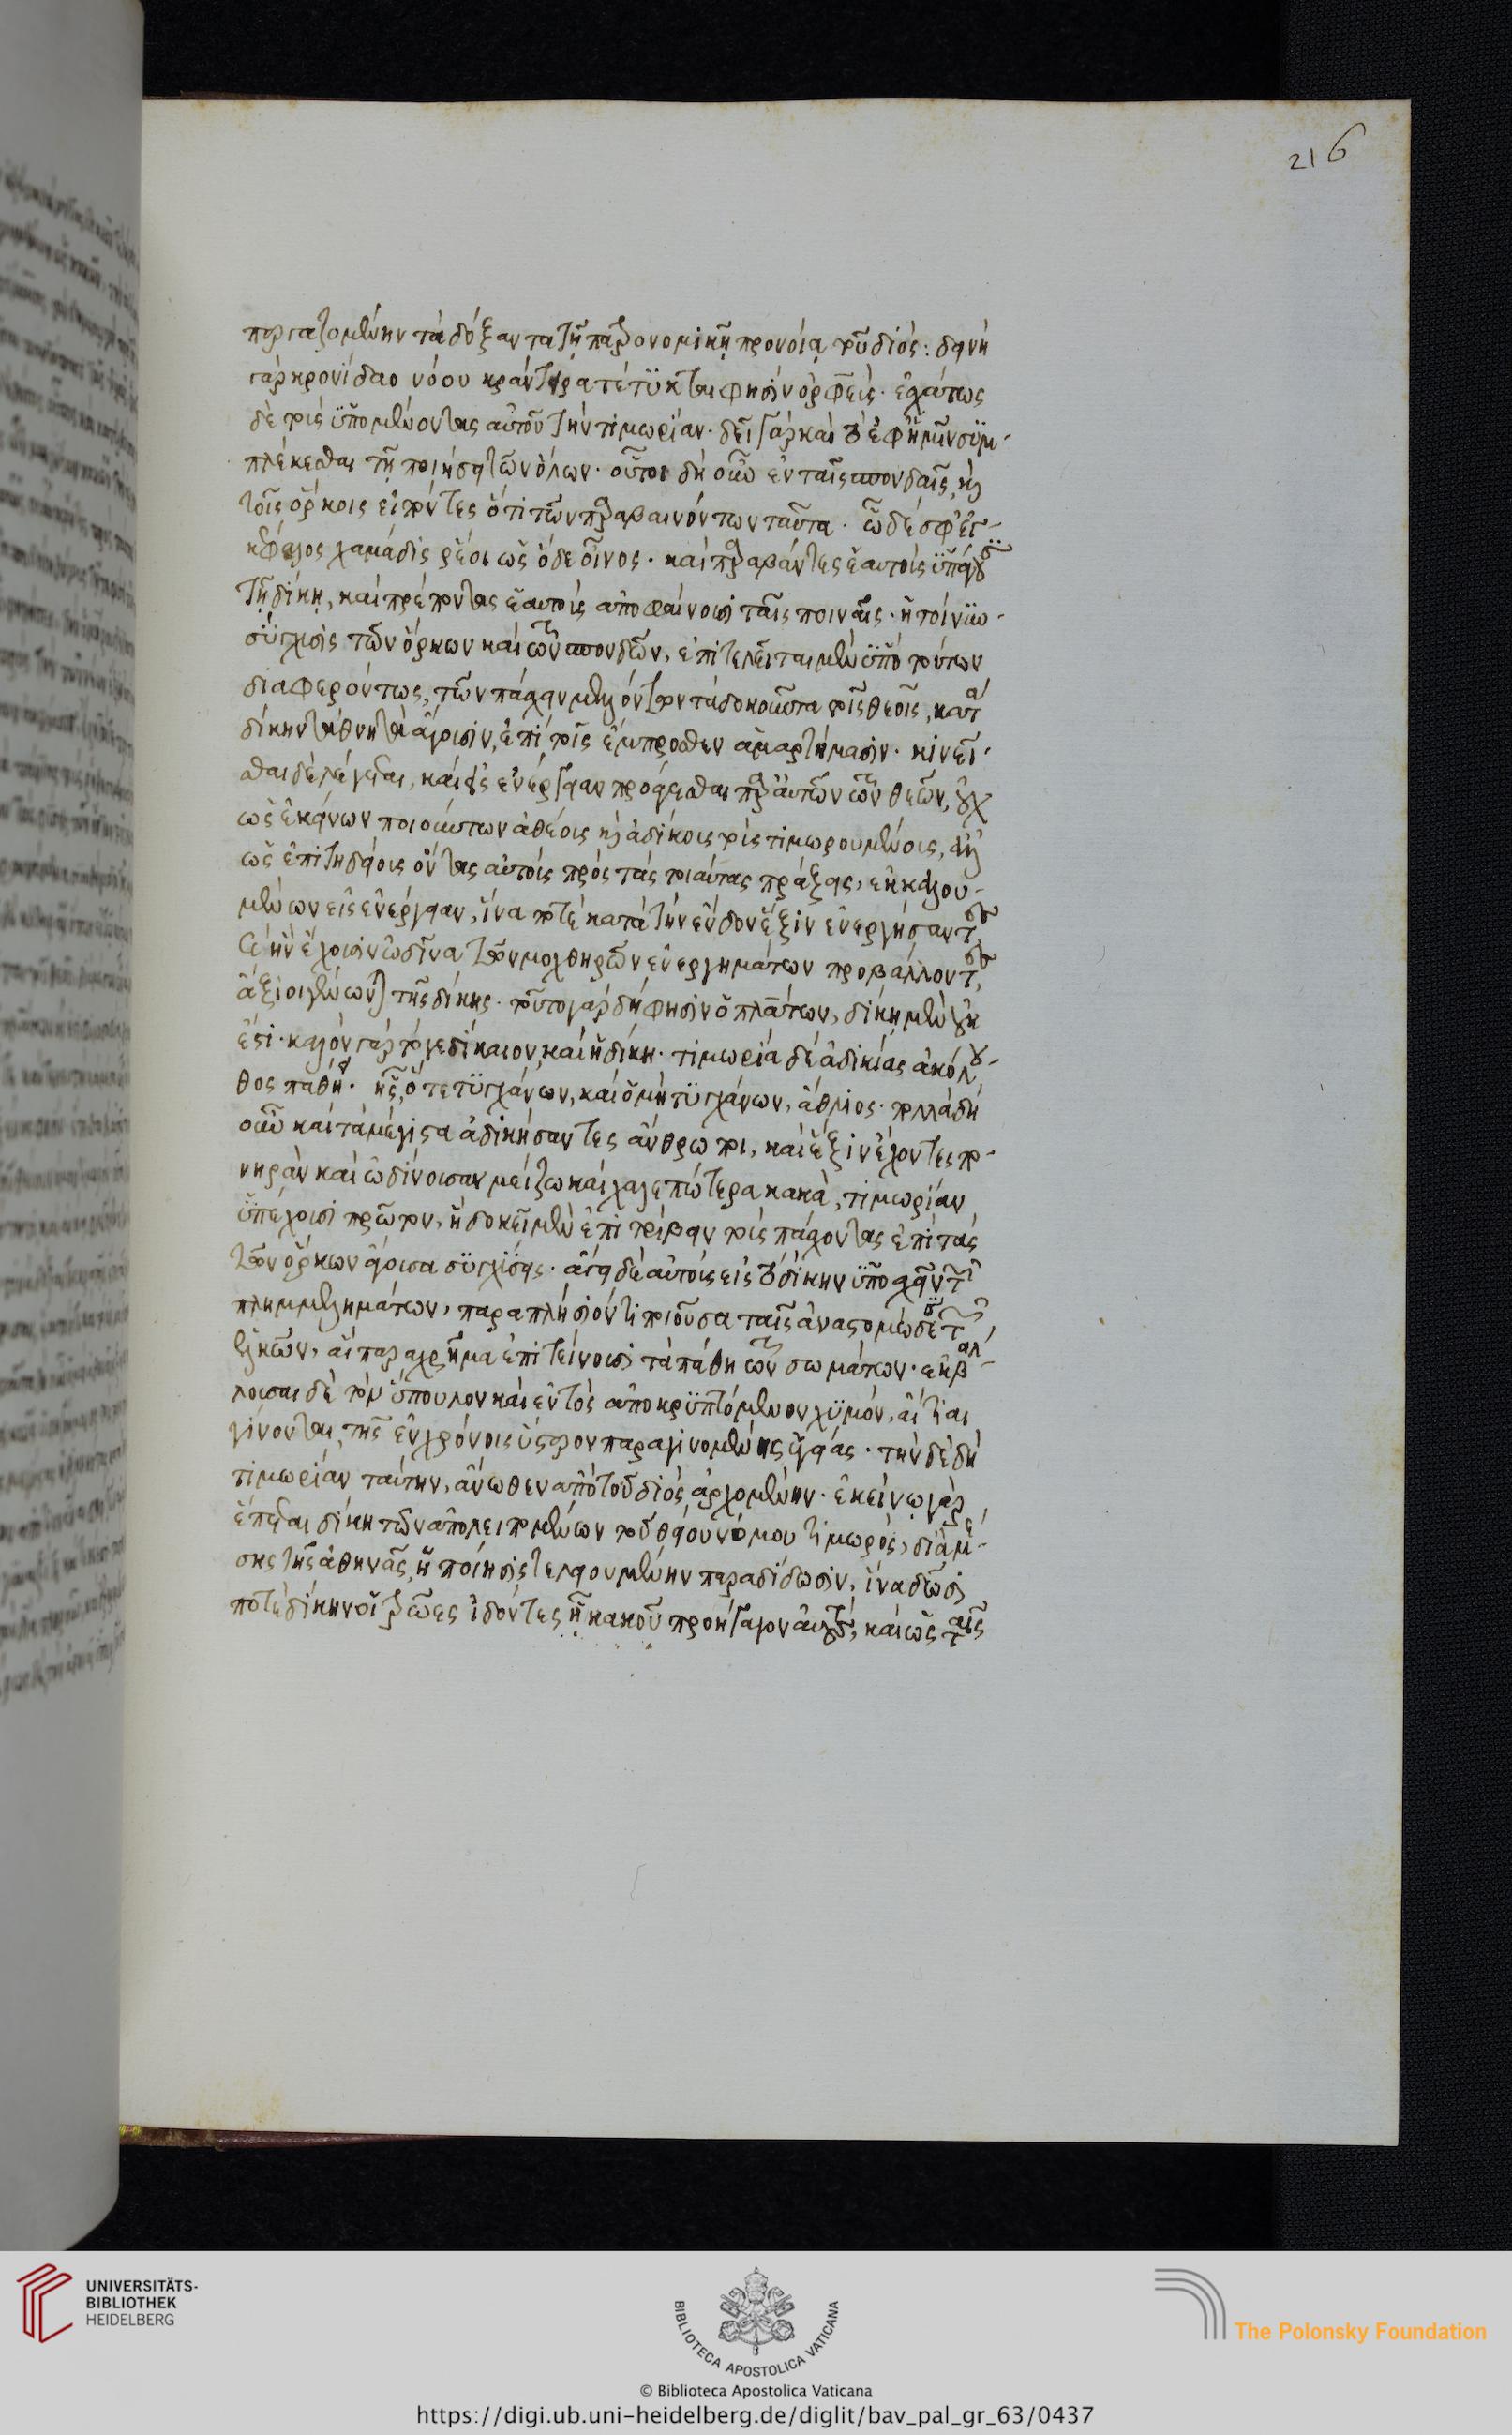 προσταζομένην τὰ δόξαντα τῇ πατρονομικῇ προνοίᾳ τοῦ διός: δεινὴ
γὰρ κρονίδαο νόου κράντειρα τέτϋκται φησὶν ὀρφεύς. ἐσχάτως
δὲ τοὺς ϋπομένοντας αὐτοῦ τὴν τιμωρίαν. δεῖ γὰρ καὶ τὸ ἐφ' ἡμῖν σϋμ-
πλέκεσθαι τῇ ποιήσει τῶν ὅλων. οὗτοι δὴ οὖν ἐν ταῖς σπονδαῖς, καὶ
τοῖς ὅρκοις εἰπόντες ὅτι τῶν παραβαινόντων ταῦτα. ὧδέ σφ' ἐγ-
κέφαλος χαμάδις ῥέοι ὡς ὅδε οἶνος. καὶ παραβάντες ἑαυτοὺς ϋπάγουσι
τῇ δίκῃ, καὶ πρέποντας ἑαυτοὺς ἀποφαίνουσι ταῖς ποιναῖς. ἡ τοίνυν
σύγχυσις τῶν ὅρκων καὶ τῶν σπονδῶν, ἐπιτελεῖται μὲν ϋπὸ τούτων
διαφερόντως, τῶν πάσχειν μελλόντων τὰ δοκοῦντα τοῖς θεοῖς, κατὰ
δίκην τὰ θνητὰ ἄγουσιν, ἐπὶ τοῖς ἔμπροσθεν ἁμαρτήμασιν. κινεῖ-
σθαι δὲ λέγεται, καὶ εἰς ἐνέργειαν προάγεσθαι παρ' αὐτῶν τῶν θεῶν, οὐχ
ὡς ἐκείνων ποιούντων ἀθέους καὶ ἀδίκους τοὺς τιμωρουμένους, ἀλλ'
ὡς ἐπιτηδείους ὄντας αὐτοὺς πρὸς τὰς τοιαύτας πράξεις, ἐκκαλου-
μένων εἰς ἐνέργειαν, ἵνα ποτὲ κατὰ τὴν ἔνδον ἕξιν ἐνεργήσαντες,
καὶ ἣν ἔχουσιν ὠδῖνα τῶν μοχθηρῶν ἐνεργημάτων προβάλλοντες,
ἄξιοι γένωνται τῆς δίκης. τοῦτο γὰρ δὴ φησὶν ὁ πλάτων, δίκη μὲν οὐκ
ἔστι. καλὸν γὰρ τό γε δίκαιον καὶ ἡ δίκη. τιμωρία δὲ ἀδικίας ἀκόλου-
θος πάθη. ἧς, ὅ τε τϋγχάνων, καὶ ὁ μὴ τϋγχάνων, ἄθλιος. πολλὰ δὴ
οὖν καὶ τὰ μέγιστα ἀδικήσαντες ἄνθρωποι, καὶ ἕξιν ἔχοντες πο-
νηρὰν καὶ ὠδίνουσαν μείζω καὶ χαλεπώτερα κακὰ, τιμωρίαν
ϋπέχουσι πρῶτον, ἣ δοκεῖ μὲν ἐπιτρίβειν τοὺς πάσχοντας ἐπὶ τὰς
τῶν ὅρκων ἄγουσα σϋγχύσεις. ἄγει δὲ αὐτοὺς εἰς τὸ δίκην ϋποσχεῖν τῶν
πλημμελημάτων, παραπλήσιόν τι ποιοῦσα ταῖς ἀναστομώσεσι τῶν
ἑλκῶν, αἳ παραχρῆμα ἐπιτείνουσι τὰ πάθη τῶν σωμάτων. ἐκβάλ-
λουσαι δὲ τὸν ὕπουλον καὶ ἐντὸς ἀποκρϋπτόμενον χϋμόν, αἴτιαι
γίνονται, τῆς ἐν χρόνοις ὕστερον παραγινομένης ὑγείας. τὴν δὲ δὴ
τιμωρίαν ταύτην, ἄνωθεν ἀπὸ τοῦ διὸς ἀρχομένην. ἐκείνῳ γὰρ
ἕπεται δίκη τῶν ἀπολειπομένων τοῦ θείου νόμου τιμωρός, διὰ μέ-
σης τῆς ἀθηνᾶς, ἡ ποίησις τελειουμένην παραδίδωσιν, ἵνα δῶσι
ποτὲ δίκην οἱ τρῶες ἰδόντες ᾗ κακοῦ προήγαγον αὑτούς, καὶ ὡς ταῖς
216
UNIVERSITÄTS-
BIBLIOTHEK
HEIDELBERG
BIBLIOTECA APOSTOLICA VATICANA
© Biblioteca Apostolica Vaticana
The Polonsky Foundation
https://digi.ub.uni-heidelberg.de/diglit/bav_pal_gr_63/0437